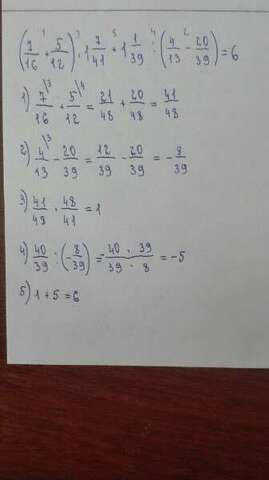 (7/16 + 5/12) · 1 7/41 + 1 1/39 : (4/13 - 20/39) = 6
1) 7/16 + 5/12 = 21/48 + 20/48 = 41/48
2) 4/13 - 20/39 = 12/39 - 20/39 = - 8/39
3) 41/48 · 48/41 = 1
4) 40/39 : (- 8/39) = - 40 · 39 / 39 · 8 = -5
5) 1 + 5 = 6